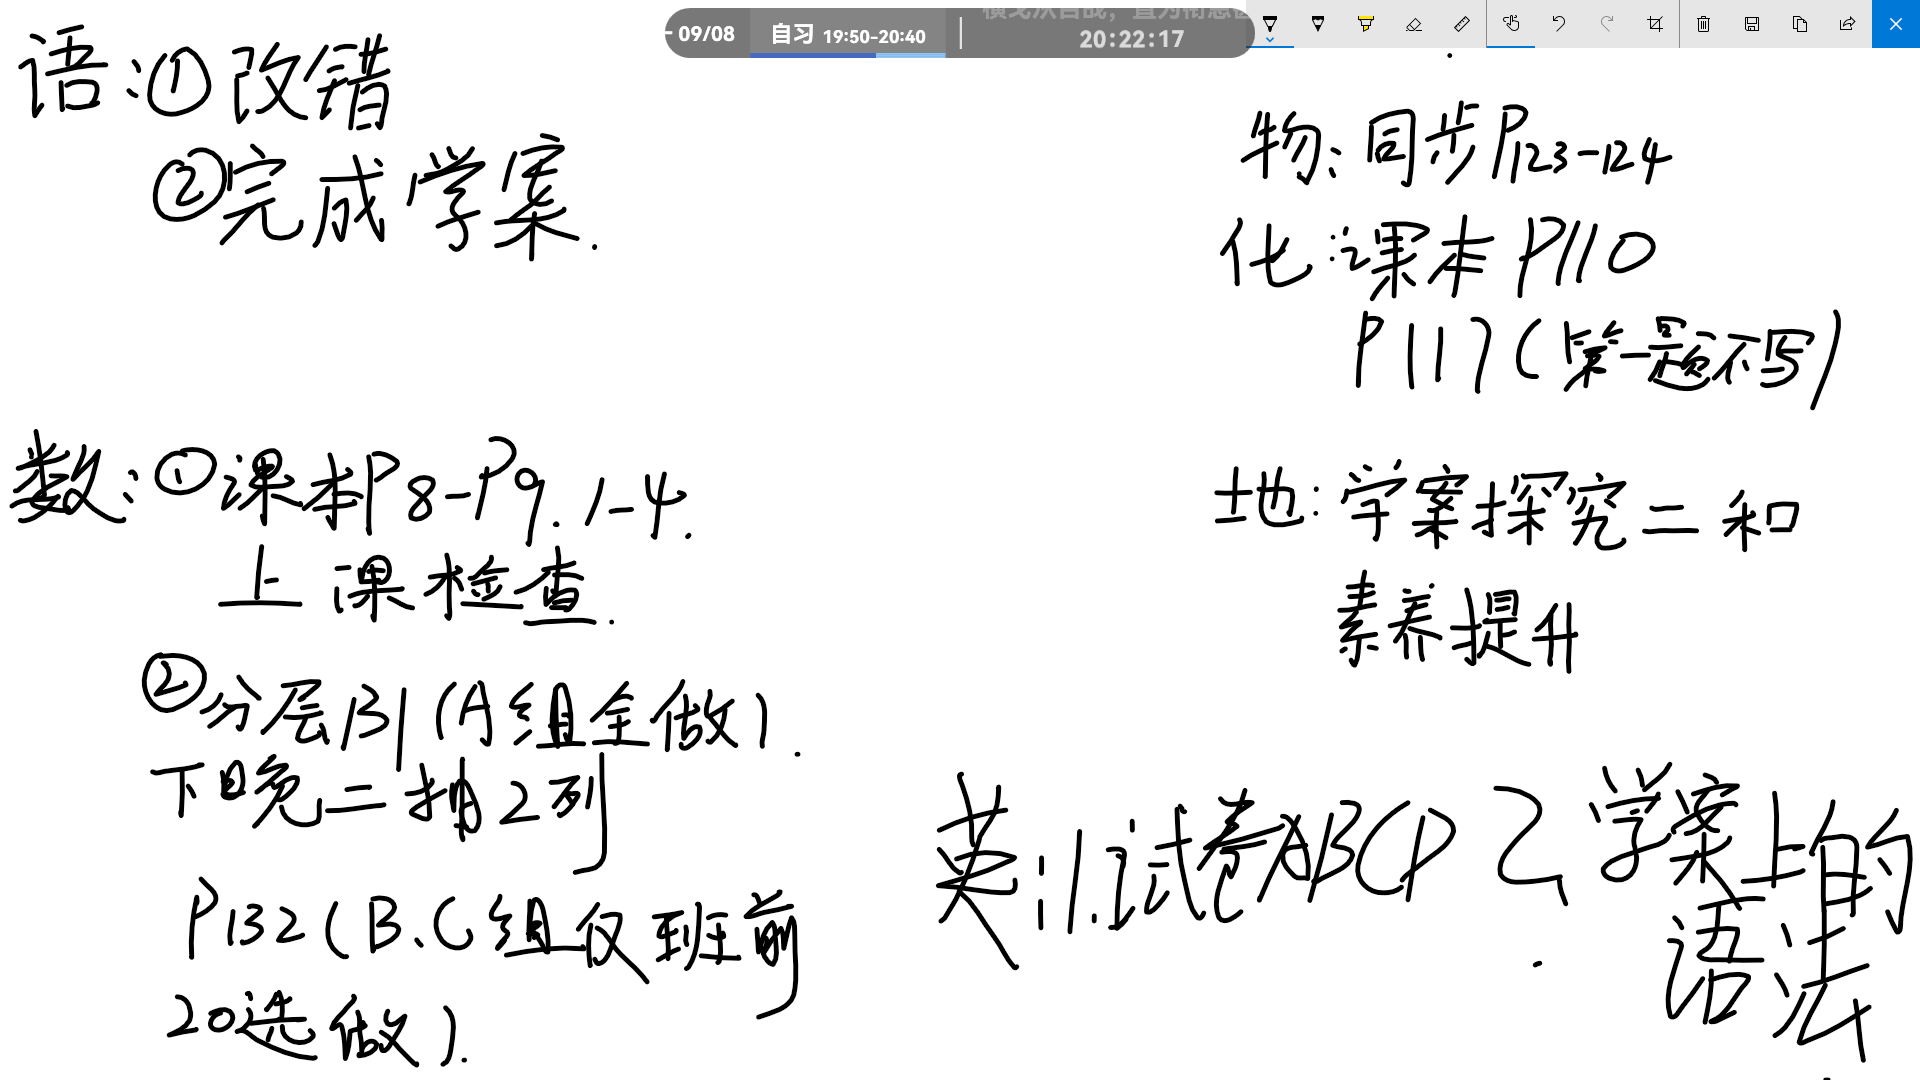 09/08 自习 19:50-20:40 20:22:17
语:①改错
②完成学案.
数:①课本P8-P9.1-4.
上课检查.
②分层B1(A组全做).
下日晚二抽2列
P132(B、C组仅班前
20选做).
物:同步P123-124
化:课本P110
P117(第一题不写)
地:学案探究二和
素养提升
英:1.试卷ABCD 2.学案上的
语法